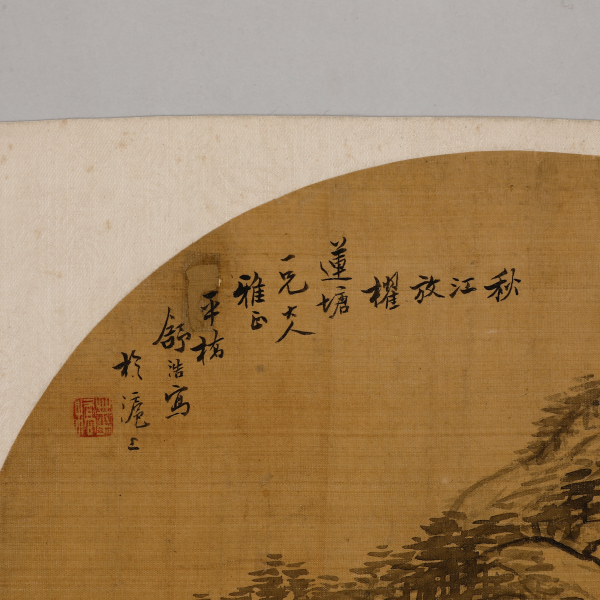 秋
江
放
櫂
蓮塘
一兄大人
雅正
平橋
舒浩寫
於滬上